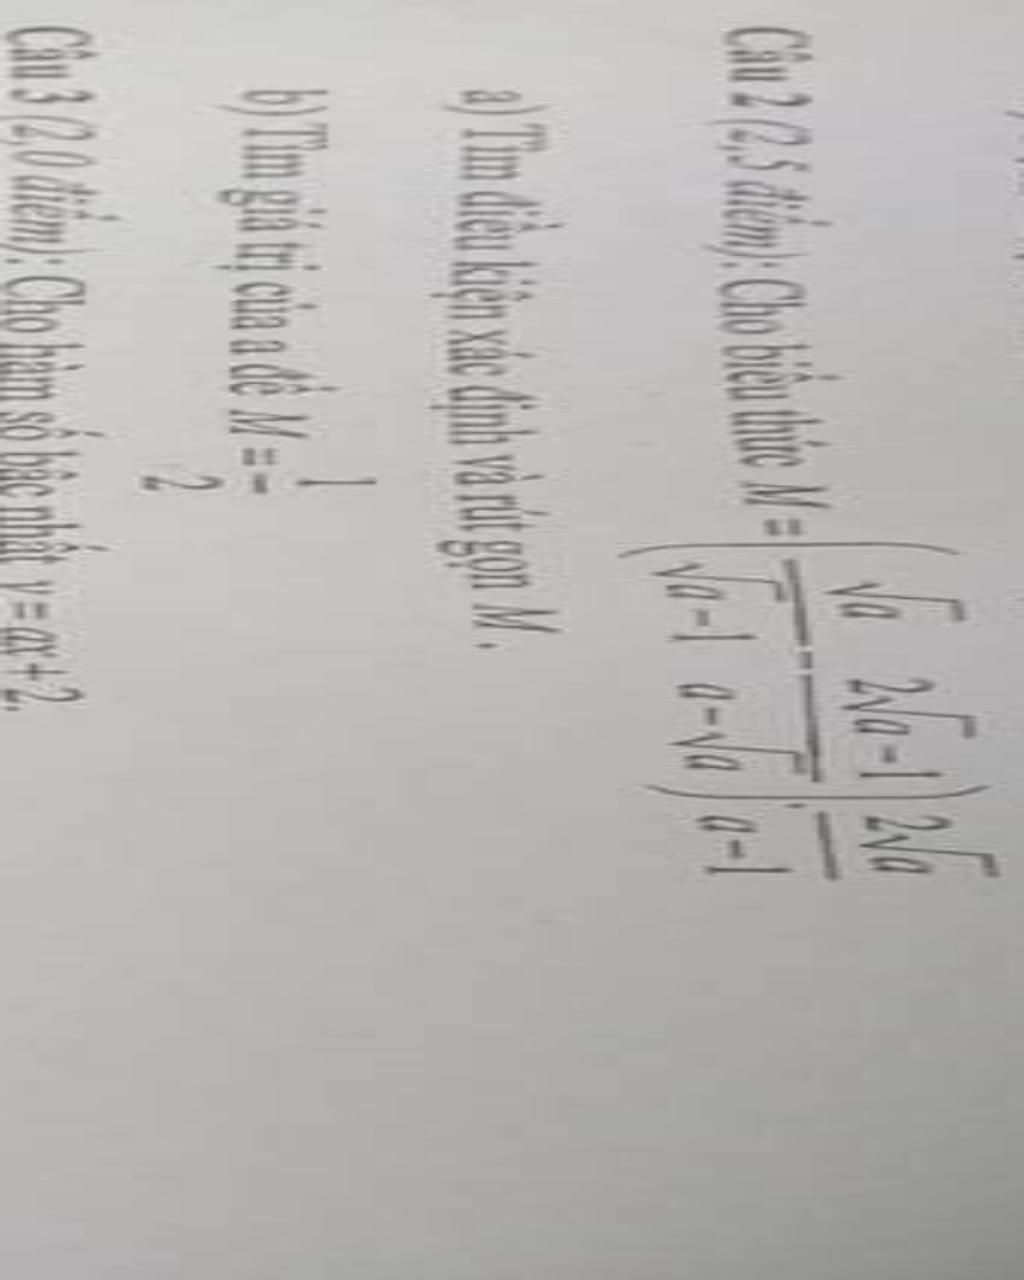 Câu 2 (2,5 điểm): Cho biểu thức M = (√a / (√a − 1) − (2√a − 1) / (a − √a)) · 2√a / (a − 1)
a) Tìm điều kiện xác định và rút gọn M.
b) Tìm giá trị của a để M = 1/2
Câu 3 (2,0 điểm): Cho hàm số bậc nhất y = ax + 2.